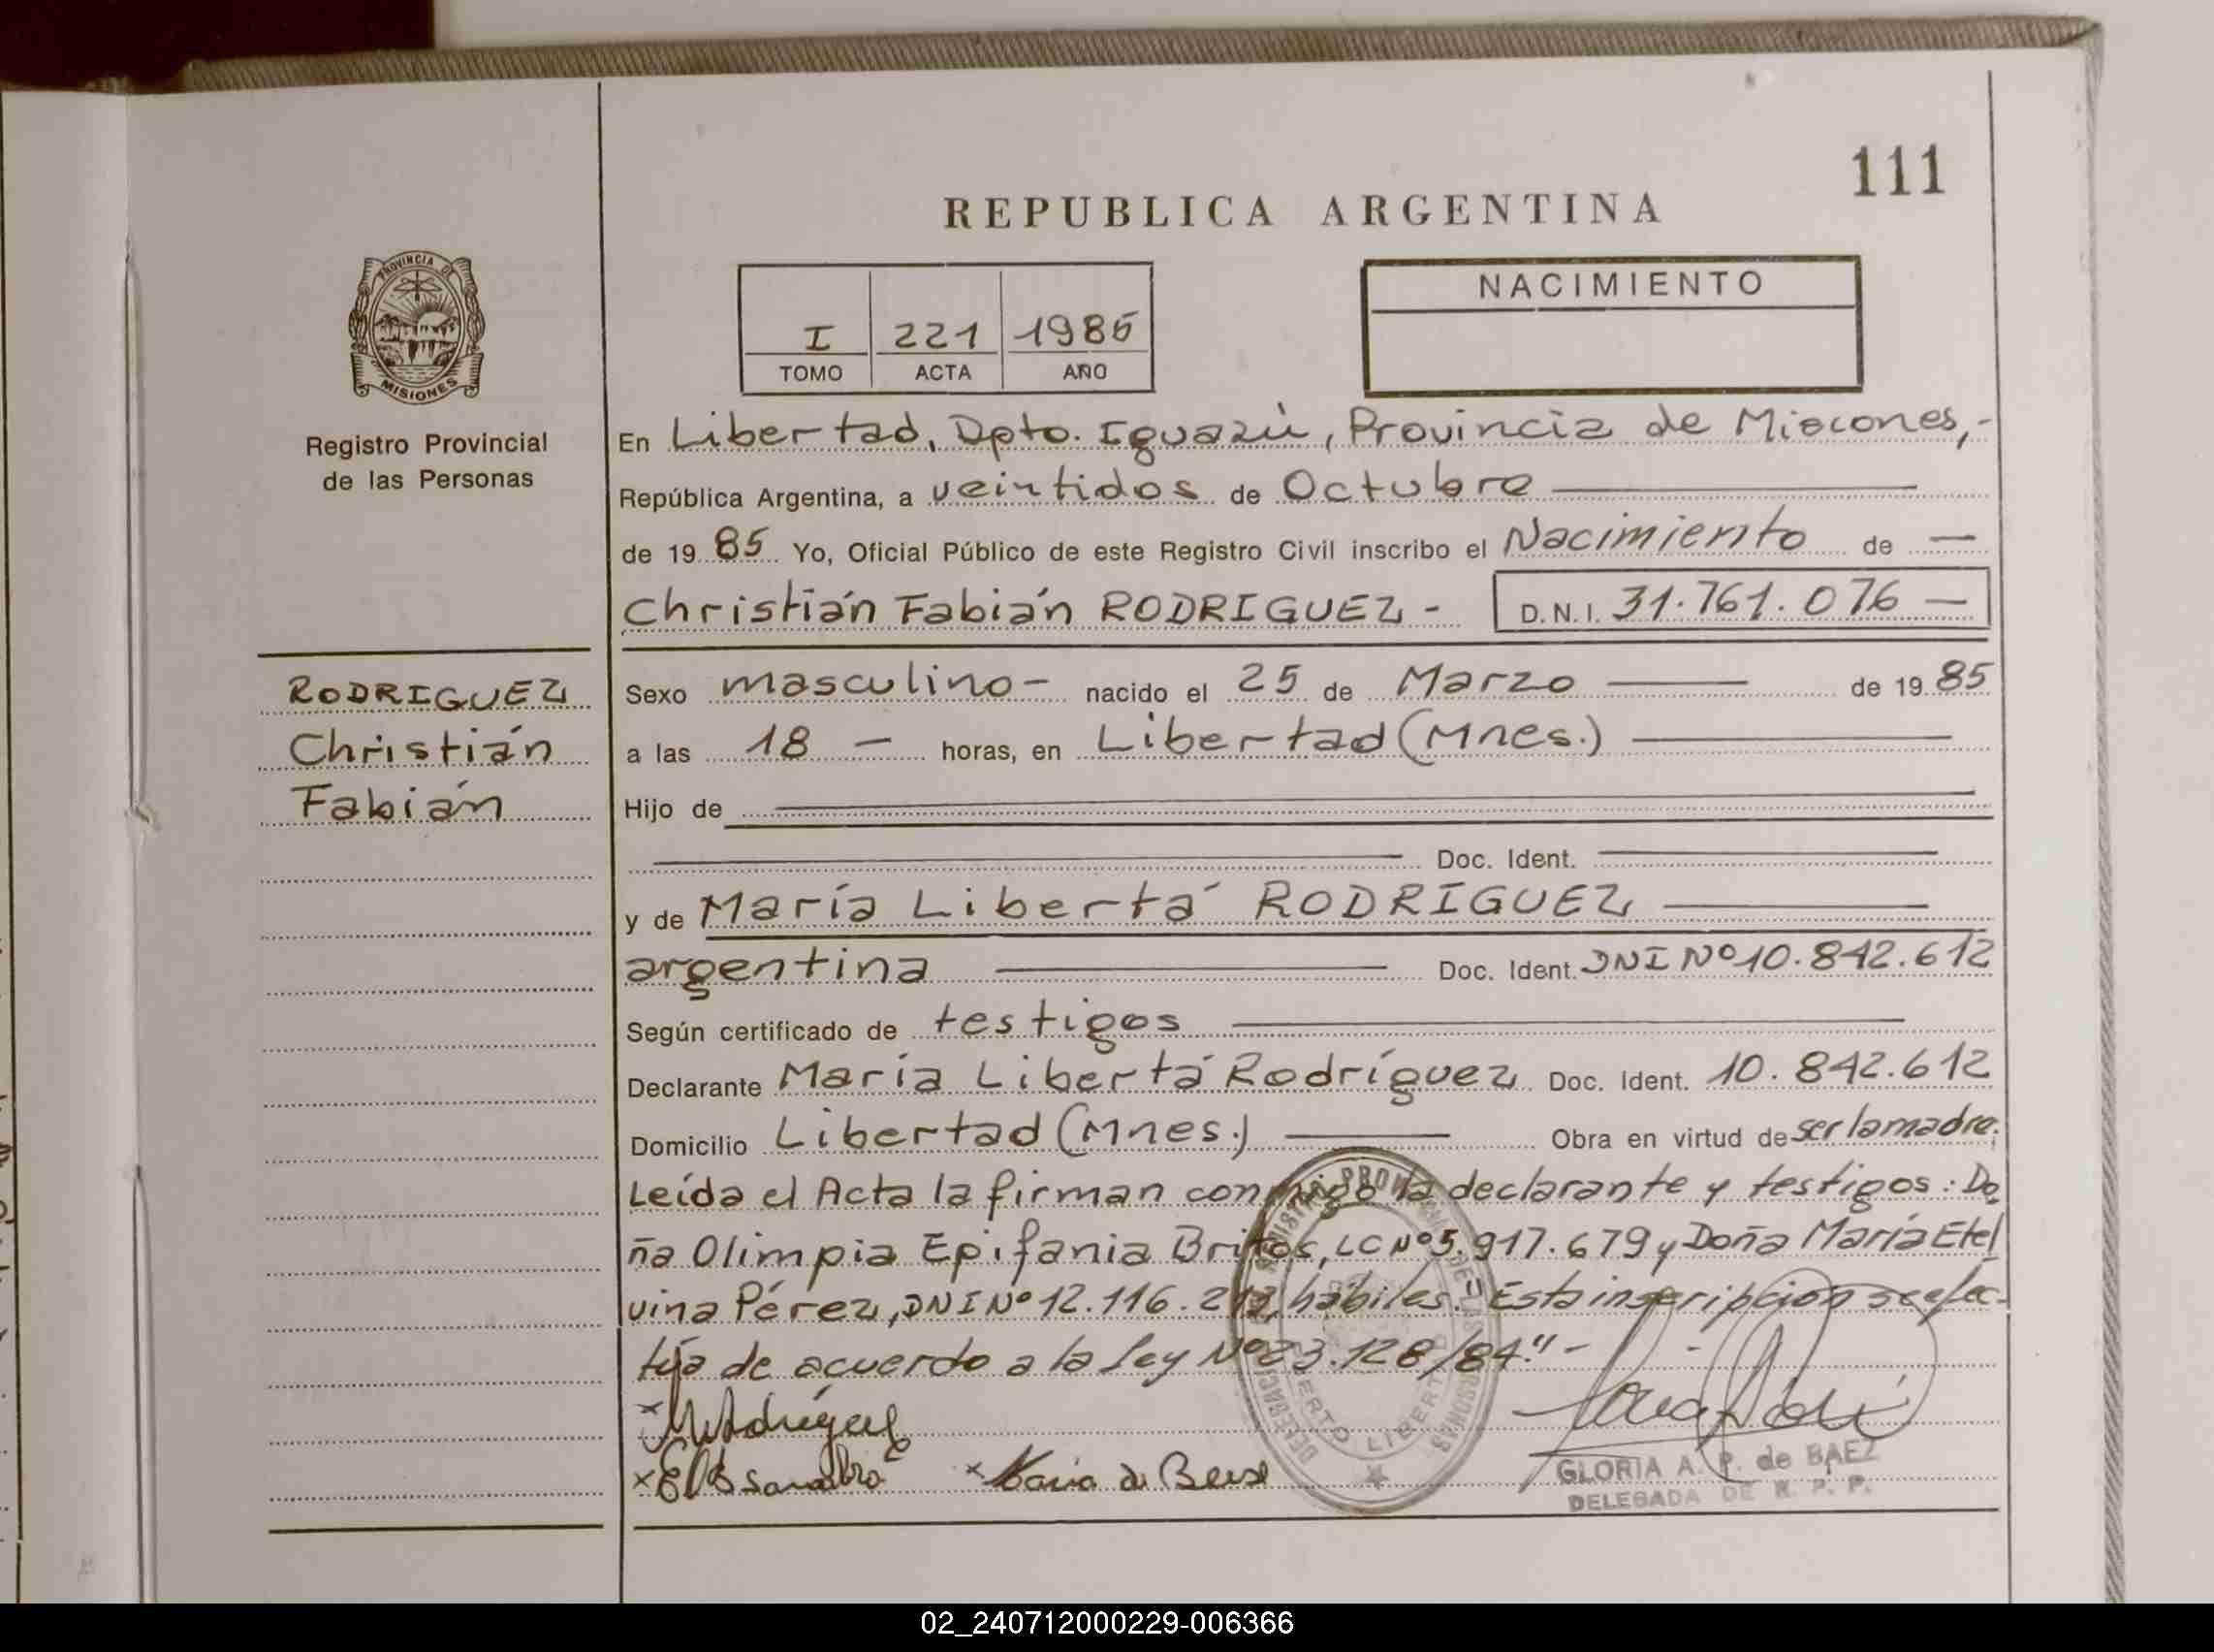 111
REPUBLICA ARGENTINA
PROVINCIA DE
MISIONES
Registro Provincial
de las Personas
I 221 1985
TOMO ACTA AÑO
NACIMIENTO
En Libertad, Dpto. Iguazú, Provincia de Misiones,-
República Argentina, a veintidos de Octubre
de 19 85 Yo, Oficial Público de este Registro Civil inscribo el Nacimiento de —
Christián Fabián RODRIGUEZ - D.N.I. 31.761.076 —
RODRIGUEZ
Christián
Fabián
Sexo masculino- nacido el 25 de Marzo de 19 85
a las 18 — horas, en Libertad (Mnes.)
Hijo de
Doc. Ident.
y de María Libertá RODRIGUEZ
argentina Doc. Ident. DNI Nº 10.842.612
Según certificado de testigos
Declarante María Libertá Rodríguez Doc. Ident. 10.842.612
Domicilio Libertad (Mnes.) Obra en virtud de ser la madre.
Leída el Acta la firman conmigo la declarante y testigos: Do
ña Olimpia Epifania Britos, LC Nº 5.917.679 y Doña María Etel
vina Pérez, DNI Nº 12.116. hábiles.- Esta inscripción se efec-
túa de acuerdo a la ley Nº 23.128/84."-
LIBERTAD
María de
GLORIA A. P. de BAEZ
DELEGADA DE R. P. P.
02_240712000229-006366